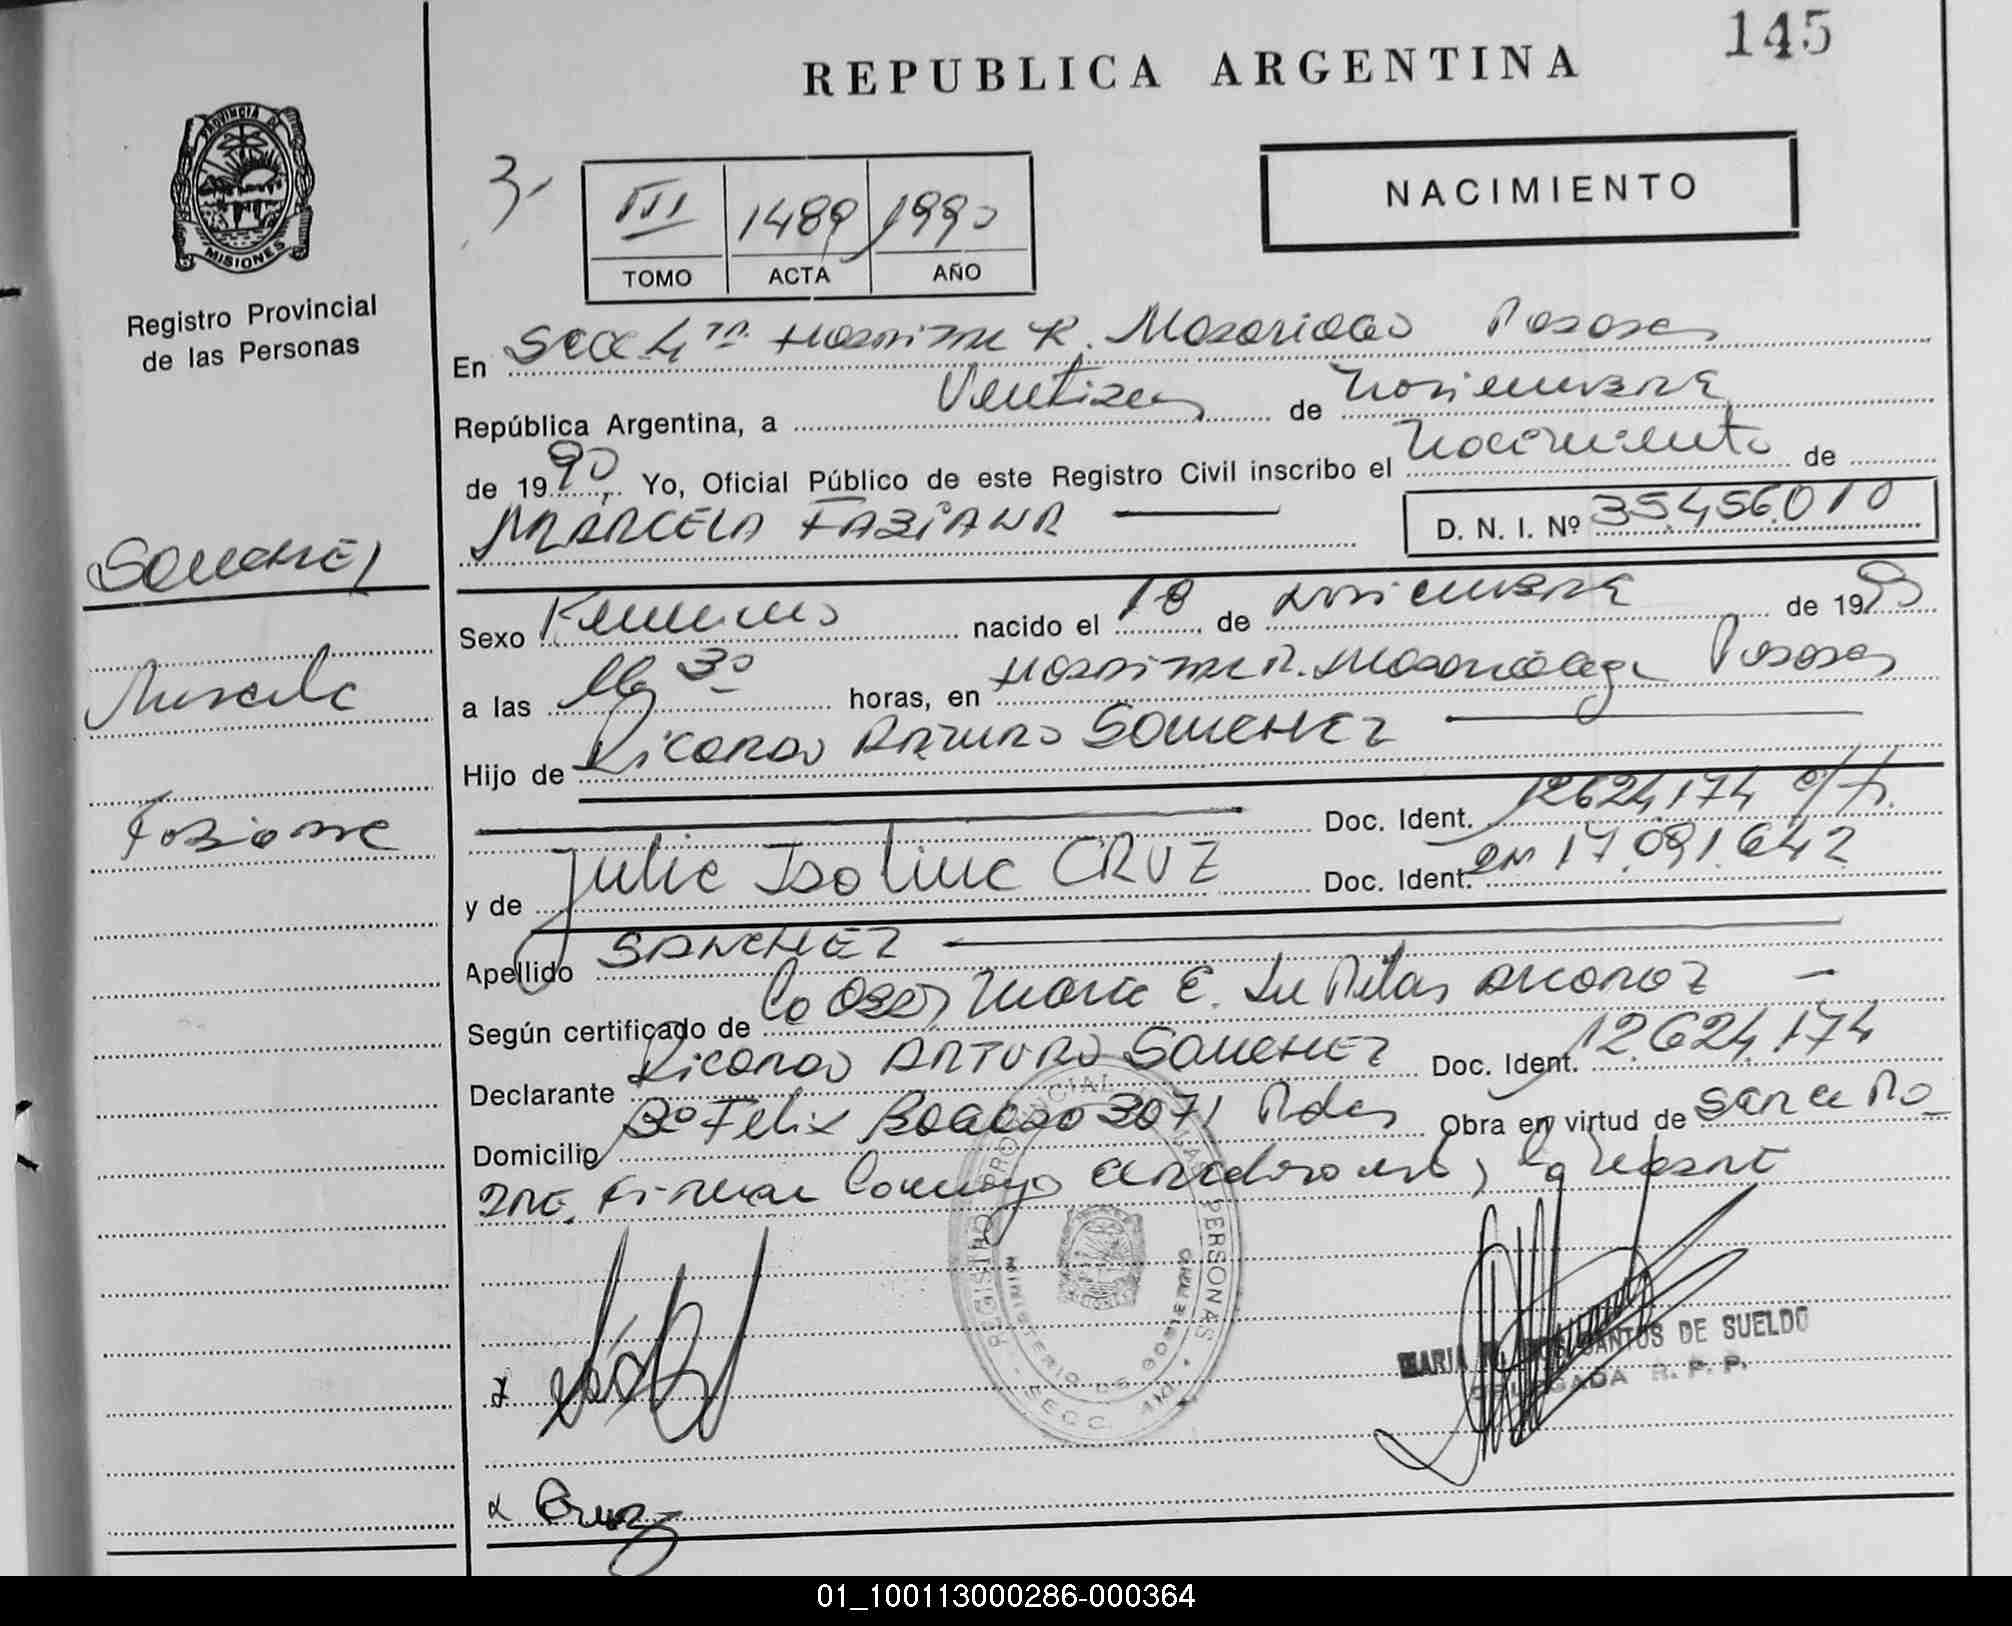 145
REPUBLICA ARGENTINA
PROVINCIA DE
MISIONES
Registro Provincial
de las Personas
NACIMIENTO
3-
III 1489 1990
TOMO ACTA AÑO
En Secc 4ta Hospital R. Madariaga Posadas
República Argentina, a Ventitres de Noviembre
de 1990 Yo, Oficial Público de este Registro Civil inscribo el Nacimiento de
MARCELA FABIANA D. N. I. Nº 35.456.010
SANCHEZ
Marcela
Fabiana
Sexo Femenino nacido el 18 de Noviembre de 1990
a las 30 horas, en Hospital R. Madariaga Posadas
Hijo de Ricardo ARTURO SANCHEZ
Doc. Ident. 12624.174
y de Julia Isolina CRUZ Doc. Ident. 17.091.642
Apellido SANCHEZ
Según certificado de La Obst, Maria E. De
Declarante Ricardo ARTURO SANCHEZ Doc. Ident. 12.624.174
Domicilio Bº Felix Bogado 3071 Pdas Obra en virtud de ser el Pa
dre. Firman Conmigo
REGISTRO PROVINCIAL DE LAS PERSONAS
MINISTERIO DE GOBIERNO
SECC. 4ta
MARIA DOS SANTOS DE SUELDO
DELEGADA R. P. P.
Cruz
01_100113000286-000364